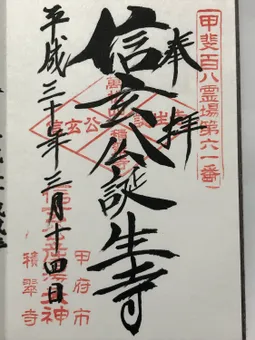 甲斐百八霊場第六一番
奉拝
信玄公誕生寺
平成三十年三月十四日
甲府市
積翠寺